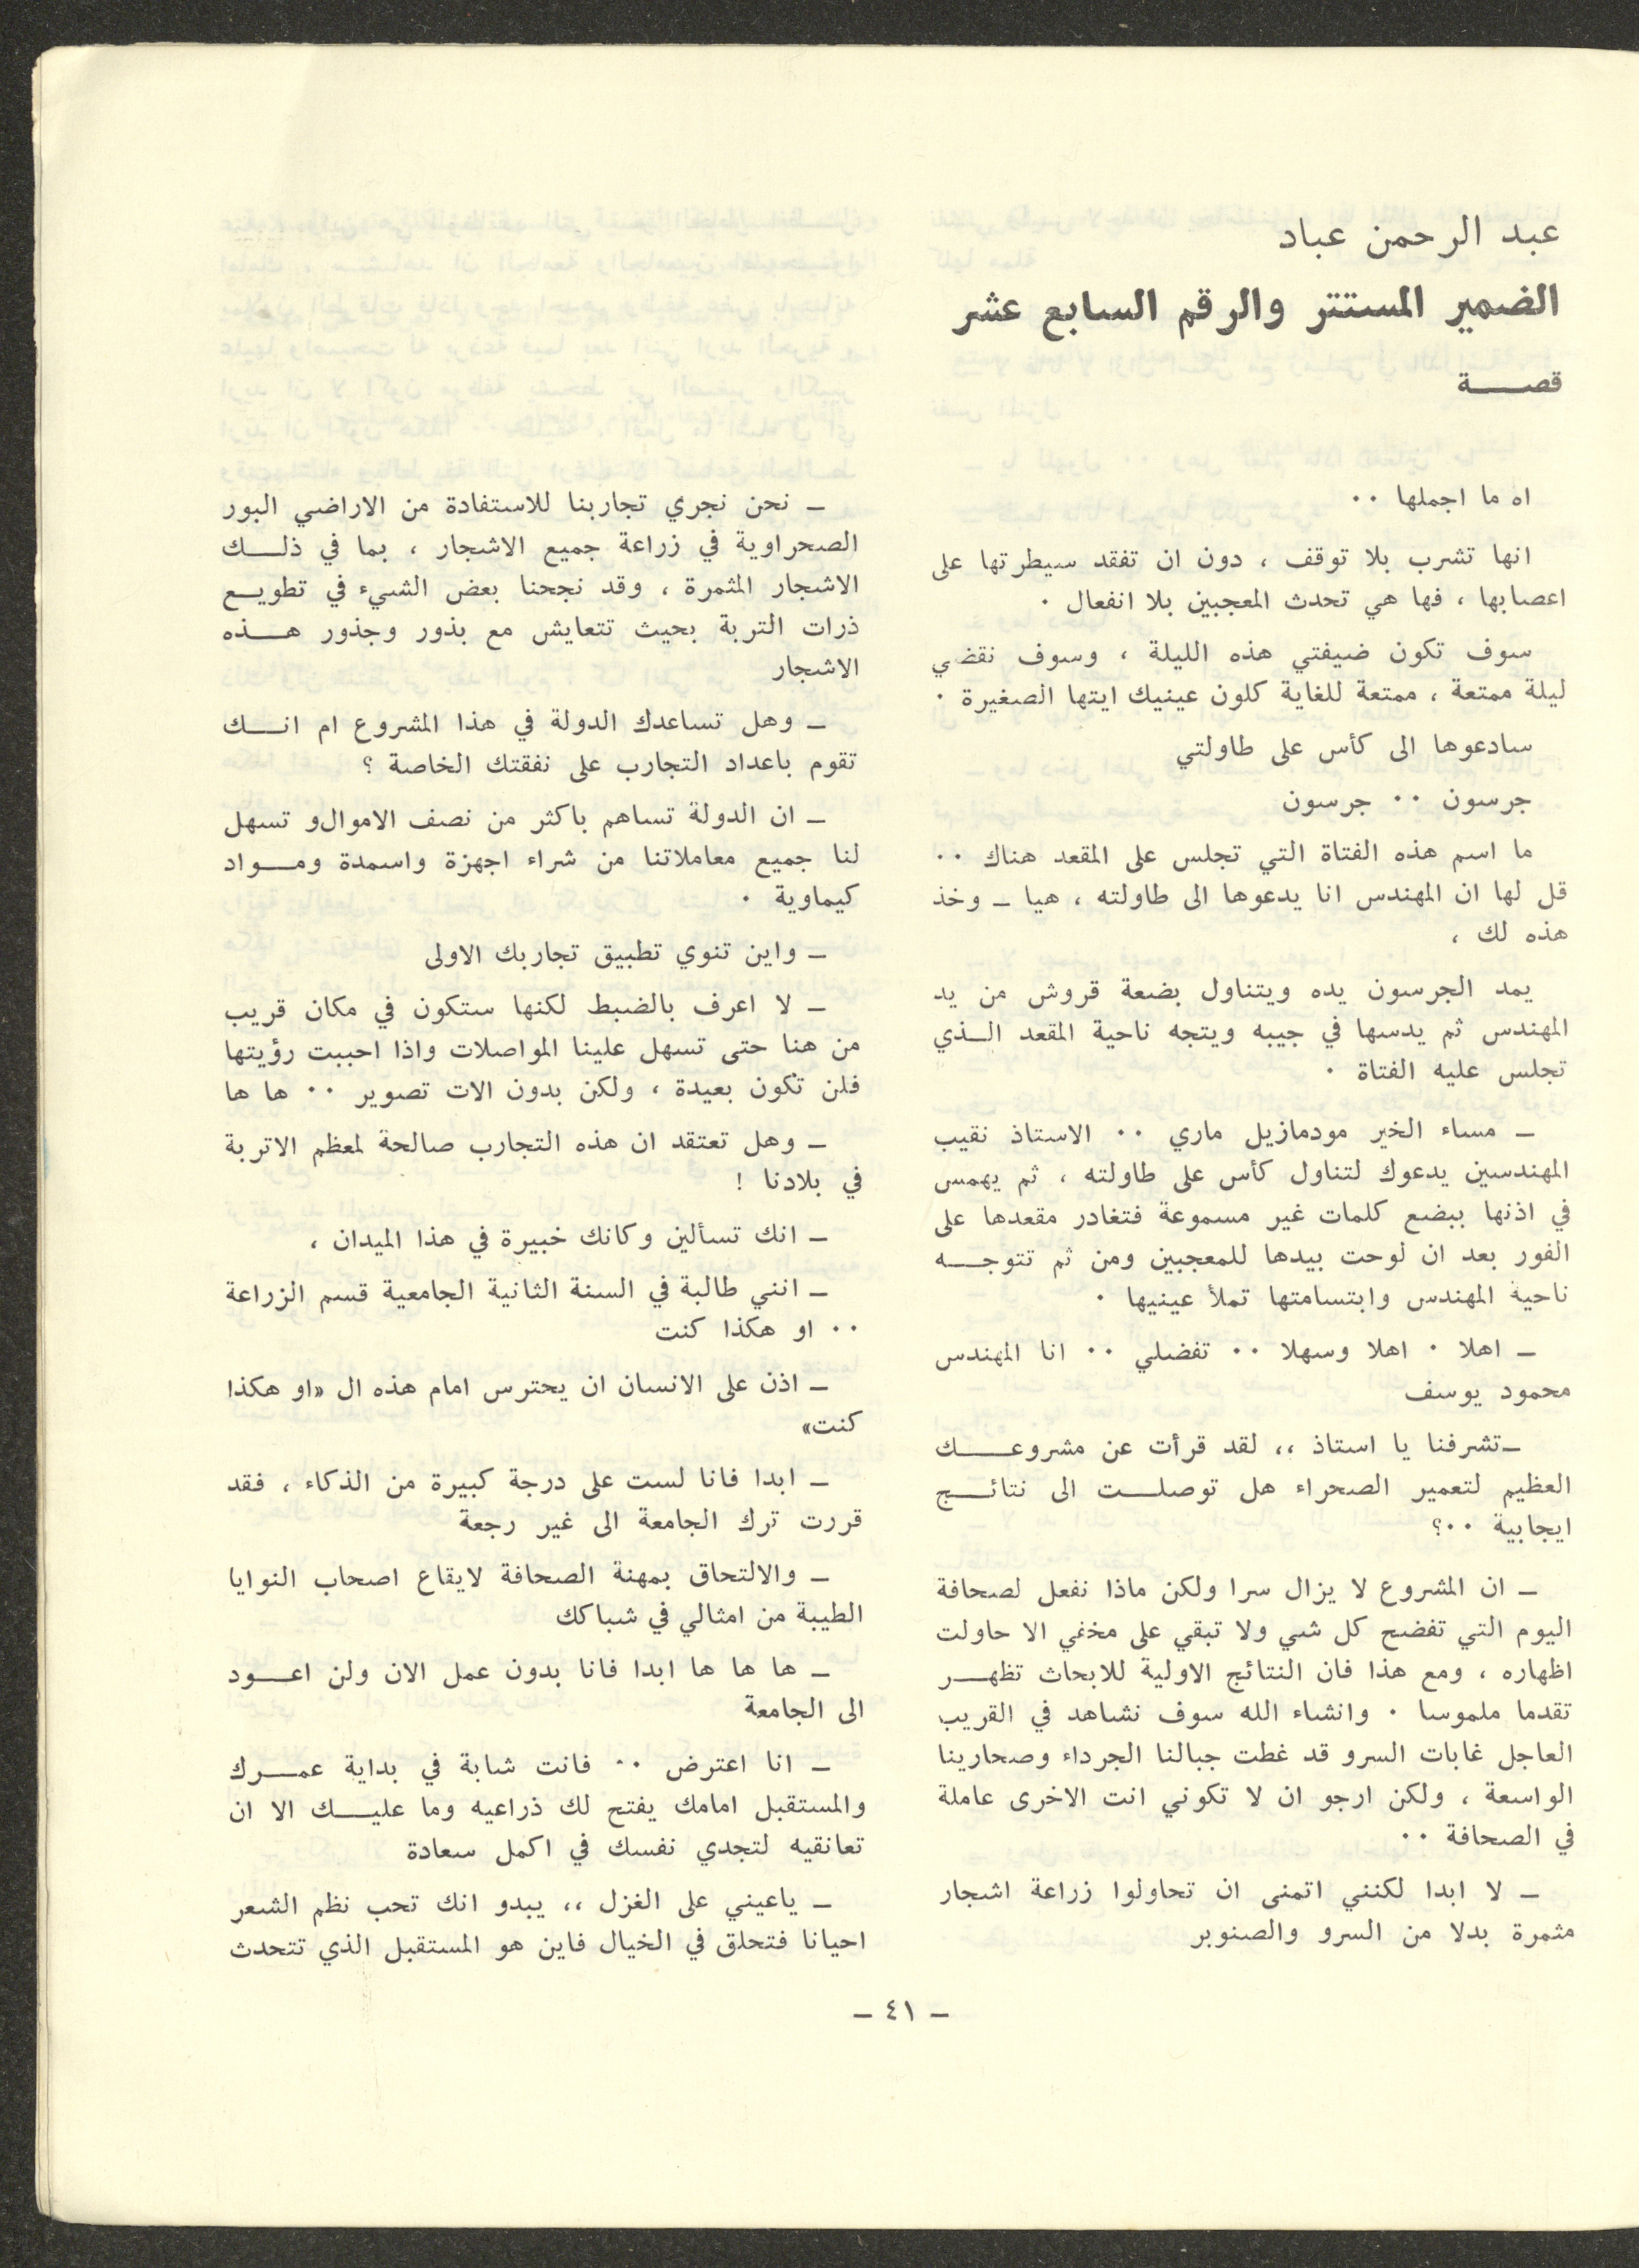 عبد الرحمن عباد
الضمير المستتر والرقم السابع عشر
قصــــة
اه ما اجملها ٠٠
انها تشرب بلا توقف ، دون ان تفقد سيطرتها على
اعصابها ، فها هي تحدث المعجبين بلا انفعال ٠
سوف تكون ضيفتي هذه الليلة ، وسوف نقضي
ليلة ممتعة ، ممتعة للغاية كلون عينيك ايتها الصغيرة ٠
سادعوها الى كأس على طاولتي
جرسون ٠٠ جرسون
ما اسم هذه الفتاة التي تجلس على المقعد هناك ٠٠
قل لها ان المهندس انا يدعوها الى طاولته ، هيا ــ وخذ
هذه لك ،
يمد الجرسون يده ويتناول بضعة قروش من يد
المهندس ثم يدسها في جيبه ويتجه ناحية المقعد الــذي
تجلس عليه الفتاة ٠
ــ مساء الخير مودمازيل ماري ٠٠ الاستاذ نقيب
المهندسين يدعوك لتناول كأس على طاولته ، ثم يهمس
في اذنها ببضع كلمات غير مسموعة فتغادر مقعدها على
الفور بعد ان لوحت بيدها للمعجبين ومن ثم تتوجــه
ناحية المهندس وابتسامتها تملأ عينيها ٠
ــ اهلا ٠ اهلا وسهلا ٠٠ تفضلي ٠٠ انا المهندس
محمود يوسف
ــتشرفنا يا استاذ ،، لقد قرأت عن مشروعــــك
العظيم لتعمير الصحراء هل توصلــت الى نتائــج
ايجابية ٠٠؟
ــ ان المشروع لا يزال سرا ولكن ماذا نفعل لصحافة
اليوم التي تفضح كل شي ولا تبقي على مخفي الا حاولت
اظهاره ، ومع هذا فان النتائج الاولية للابحاث تظهــر
تقدما ملموسا ٠ وانشاء الله سوف نشاهد في القريب
العاجل غابات السرو قد غطت جبالنا الجرداء وصحارينا
الواسعة ، ولكن ارجو ان لا تكوني انت الاخرى عاملة
في الصحافة ٠٠
ــ لا ابدا لكنني اتمنى ان تحاولوا زراعة اشجار
مثمرة بدلا من السرو والصنوبر
ــ نحن نجري تجاربنا للاستفادة من الاراضي البور
الصحراوية في زراعة جميع الاشجار ، بما في ذلــك
الاشجار المثمرة ، وقد نجحنا بعض الشيء في تطويــع
ذرات التربة بحيث تتعايش مع بذور وجذور هــذه
الاشجار
ــ وهل تساعدك الدولة في هذا المشروع ام انــك
تقوم باعداد التجارب على نفقتك الخاصة ؟
ــ ان الدولة تساهم باكثر من نصف الاموالو تسهل
لنا جميع معاملاتنا من شراء اجهزة واسمدة ومــواد
كيماوية ٠
ــ واين تنوي تطبيق تجاربك الاولى
ــ لا اعرف بالضبط لكنها ستكون في مكان قريب
من هنا حتى تسهل علينا المواصلات واذا احببت رؤيتها
فلن تكون بعيدة ، ولكن بدون الات تصوير ٠٠ ها ها
ــ وهل تعتقد ان هذه التجارب صالحة لمعظم الاتربة
في بلادنا !
ــ انك تسألين وكانك خبيرة في هذا الميدان ،
ــ انني طالبة في السنة الثانية الجامعية قسم الزراعة
٠٠ او هكذا كنت
ــ اذن على الانسان ان يحترس امام هذه ال «او هكذا
كنت»
ــ ابدا فانا لست على درجة كبيرة من الذكاء ، فقد
قررت ترك الجامعة الى غير رجعة
ــ والالتحاق بمهنة الصحافة لايقاع اصحاب النوايا
الطيبة من امثالي في شباكك
ــ ها ها ها ابدا فانا بدون عمل الان ولن اعــود
الى الجامعة
ــ انا اعترض ٠٠ فانت شابة في بداية عمــرك
والمستقبل امامك يفتح لك ذراعيه وما عليــك الا ان
تعانقيه لتجدي نفسك في اكمل سعادة
ــ ياعيني على الغزل ،، يبدو انك تحب نظم الشعر
احيانا فتحلق في الخيال فاين هو المستقبل الذي تتحدث
ــ ٤١ ــ